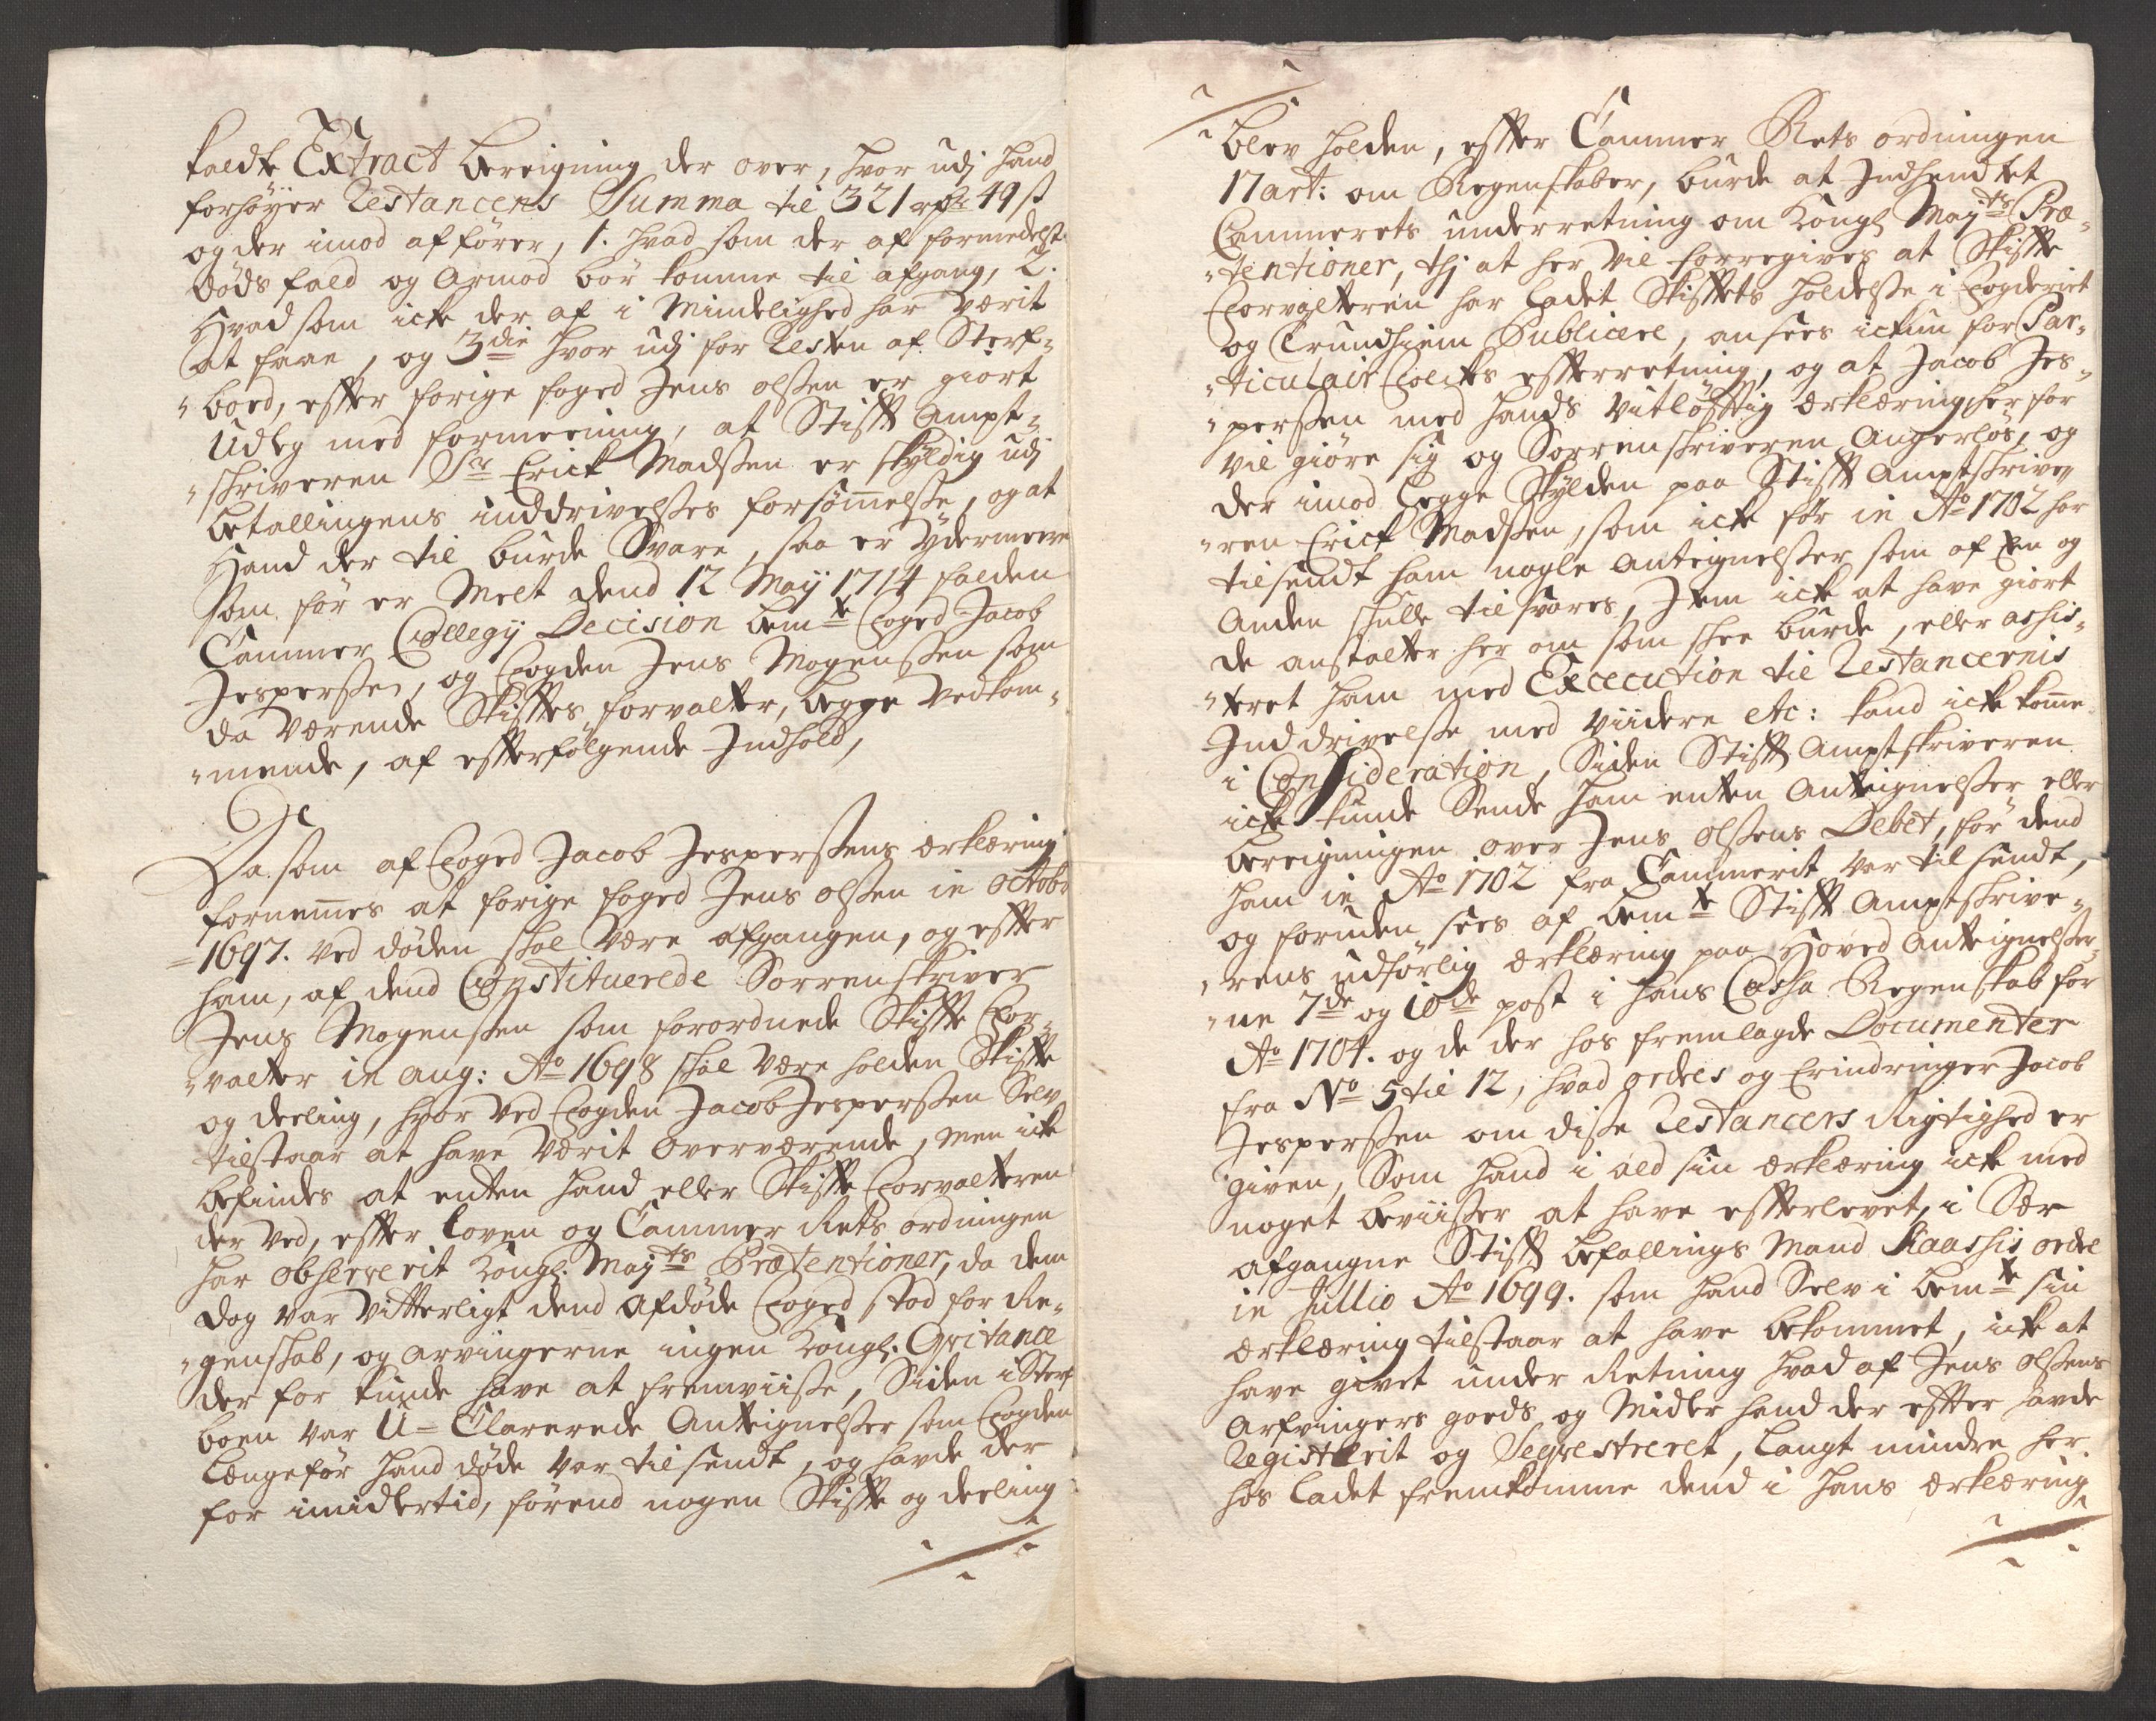 kaldte Extract bereigning der over, hvor udj hand
forhøyer Restancens Summa til 321 rdr 49 ß
og der imod affører, 1. hvad som der af formedelst
dødsfald og Armod bør komme til afgang, 2.
Hvad som icke der af i Mindelighed har værit
at faae, og 3die hvor udj for Resten af Sterf-
"boed, effter forige foged Jens olßen er giort
Udleg med formeening, at Stifft Ampt-
"skriveren Sr Erick Madsen er skyldig udj
betallingens inddrivelses forsømelse, og at
Hand der til burde Svare, saa er ydermeere
som før er Melt dend 12 Maÿ 1714 falden
Cammer Collegÿ Decision bemte Foged Jacob
Jesperßen, og Fogden Jens Mogenßen som
da Værende Skifftes forvalter, begge Vedkom-
"mende, af effterfølgende Indhold,
Da som af Foged Jacob Jesperßens ærklæring
fornemes at forige foged Jens olßen in octobr
1697. ved døden skal være afgangen, og effter
ham, af dend Constituerede Sorrenskriver
Jens Mogenßen som forordnede Skiffte For-
"valter in aug: Ao 1698 skal være holden Skiffte
og deeling, hvor ved Fogden Jacob Jesperßen Selv
tilstaar at have værit overværende, men icke
befindes at enten hand eller Skiffte Forvalteren
der ved, effter Loven og Cammer Rets ordningen
har observerit Kongl: Mayts Prætentioner, da dem
dog var vitterligt dend afdøde Foged stod for Re-
"genskab, og arvingerne ingen Kongl: Qvitance
der for kunde have at fremviiße, Siden i Sterf
boen var U-Clarerede Anteignelßer som Fogden
længe før hand døde var tilsendt, og havde der
for imidlertid, førend nogen Skiffte og deeling
blev holden, effter Cammer Rets ordningen
17 art: om Regenskaber, burde at Indhendtet
Cammerets underretning om Kongl Mayts Præ-
"tentioner, thj at her vil foregives at Skiffte
Forvalteren har Ladet Skifftets holdelse i Fogderiet
og Trundhiem Publicere, ansees ickun for Par-
"ticulair Folckes effterretning, og at Jacob Jes-
"perßen med hands vitløfftig ærklæring her for
vil giøre sig og Sorrenskriveren Angerløs, og
der imod Legge Skylden paa Stifft Amptskrive
"ren Erick Madsen, som icke før in Ao 1702 har
tilsendt ham nogle Anteignelser som af En og
Anden skulle tilsvares, Item icke at have giort
de anstalter her om som skee burde, eller assis-
"teret ham med Excecution til Restancernis
Inddrivelse med viidere etc: kand icke kome
i Consideration, Siden Stifft Amptskriveren
icke kunde Sende ham enten Anteignelßer eller
bereigningen over Jens olßens Debet, før dend
ham in Ao 1702 fra Cammerit var tilsendt,
og foruden sees af bemte Stifft Amptskrive-
"rens udførlig ærklæring paa Hoved Anteignelßer-
"ne 7de og 10de post i hans Cassa Regenskab for
Ao 1704. og de der hos fremlagde Documenter
fra No 5 til 12, hvad ordres og Erindringer Jacob
Jesperßen om diße Restancers Rigtighed er
given, Som hand i ald sin ærklæring icke med
noget beviißer at have effterlevet, i Sær
afgangne Stifft befallings Mand Kaassis ordre
in Jullio Ao 1699. som hand Selv i bemte sin
ærklæring tilstaar at have bekommet, icke at
have givet under Retning hvad af Jens olßens
Arfvingers goeds og Midler hand der effter havde
Registrerit og Seqvestreret, Langt mindre her
hos Ladet fremkomme dend i hans ærklæring